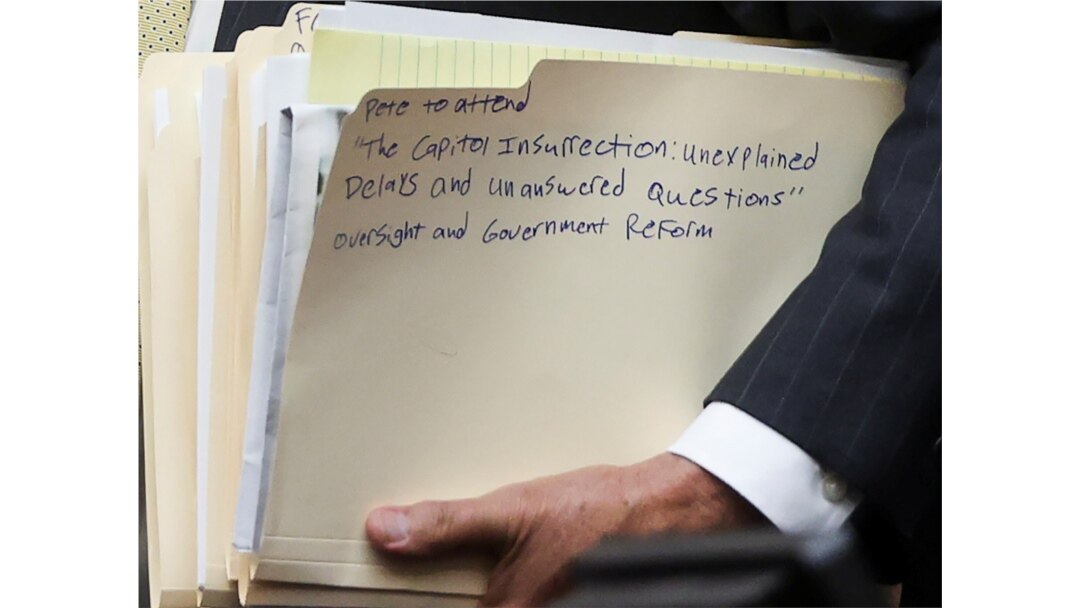 Pete to attend
"The Capitol Insurrection: Unexplained
Delays and Unanswered Questions"
Oversight and Government Reform